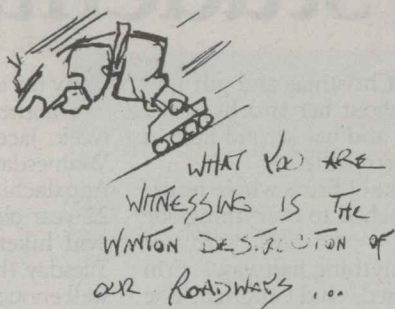 WHAT YOU ARE
WITNESSING IS THE
WINTON DESTRUCTION OF
OUR ROADWAYS ...